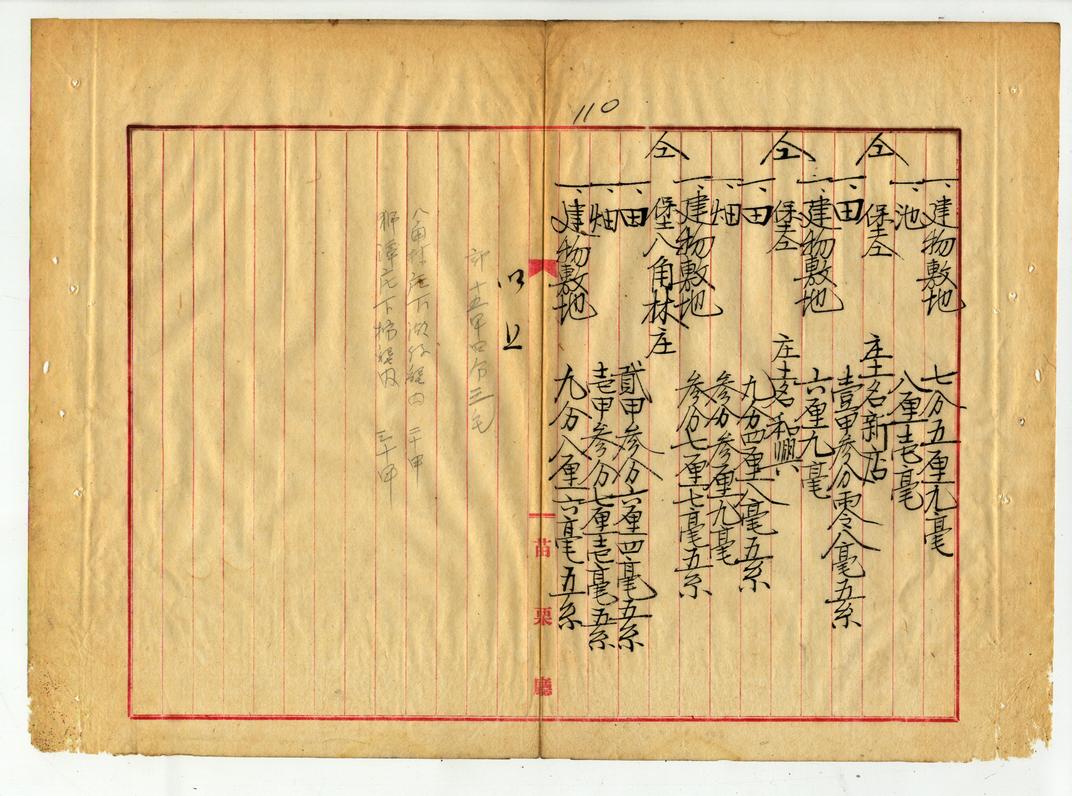 110
一、建物敷地　七分五厘九毫
一、池　八厘壱毫
仝堡仝庄土名新店
一、田　壹甲参分零八毫五糸
一、建物敷地　六厘九毫
仝堡仝庄土名和興
一、田　九分四厘八毫五糸
一、畑　参分参厘九毫
一、建物敷地　参分七厘七毫五糸
仝堡八角林庄
一、田　貳甲参分六厘四毫五糸
一、畑　壱甲参分七厘壱毫五糸
一、建物敷地　九分八厘六毫五糸
以上
苗栗廳
十五甲四分三毛
八角林庄下 内 二十甲
獅潭庄下 内 三十甲